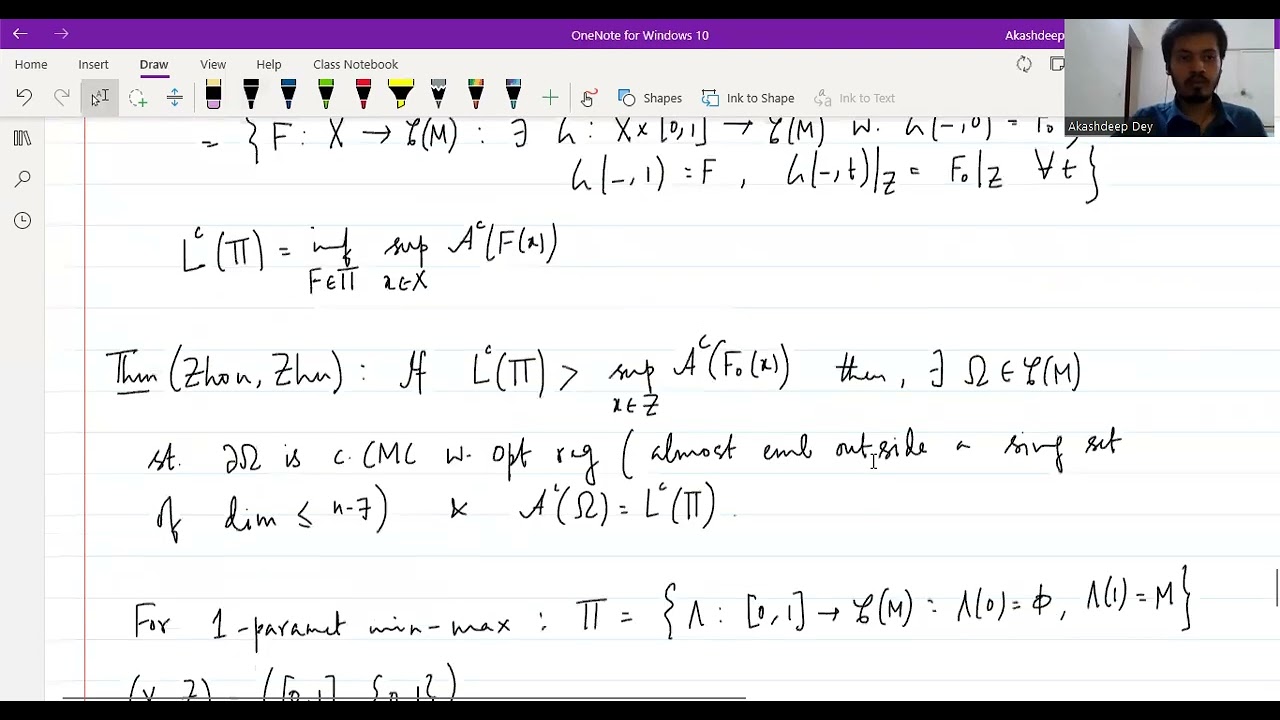 OneNote for Windows 10
Akashdeep
Home Insert Draw View Help Class Notebook
Shapes Ink to Shape Ink to Text
Akashdeep Dey
= { F : X → 𝒞(M) : ∃ h : X × [0,1] → 𝒞(M) w. h(-,0) = F₀,
h(-,1) = F , h(-,t)|_Z = F₀|_Z ∀ t }
L^c(Π) = inf_{F∈Π} sup_{x∈X} A^c(F(x))
Thm (Zhou, Zhu) : If L^c(Π) > sup_{x∈Z} A^c(F₀(x)) then, ∃ Ω ∈ 𝒞(M)
st. ∂Ω is c-CMC w. opt reg ( almost emb outside a sing set
of dim ≤ n-7) & A^c(Ω) = L^c(Π) .
For 1-paramet min-max : Π = { Λ : [0,1] → 𝒞(M) : Λ(0) = ϕ, Λ(1) = M }
(X, Z) = ([0,1], {0,1})